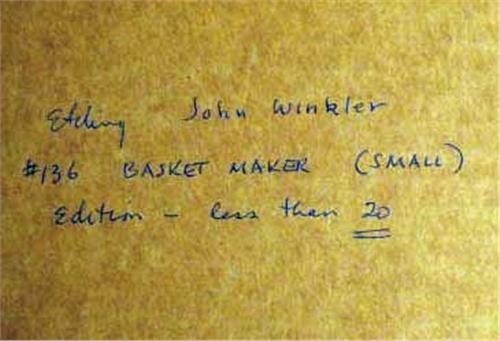 Etching John Winkler
#136 BASKET MAKER (SMALL)
Edition - less than 20